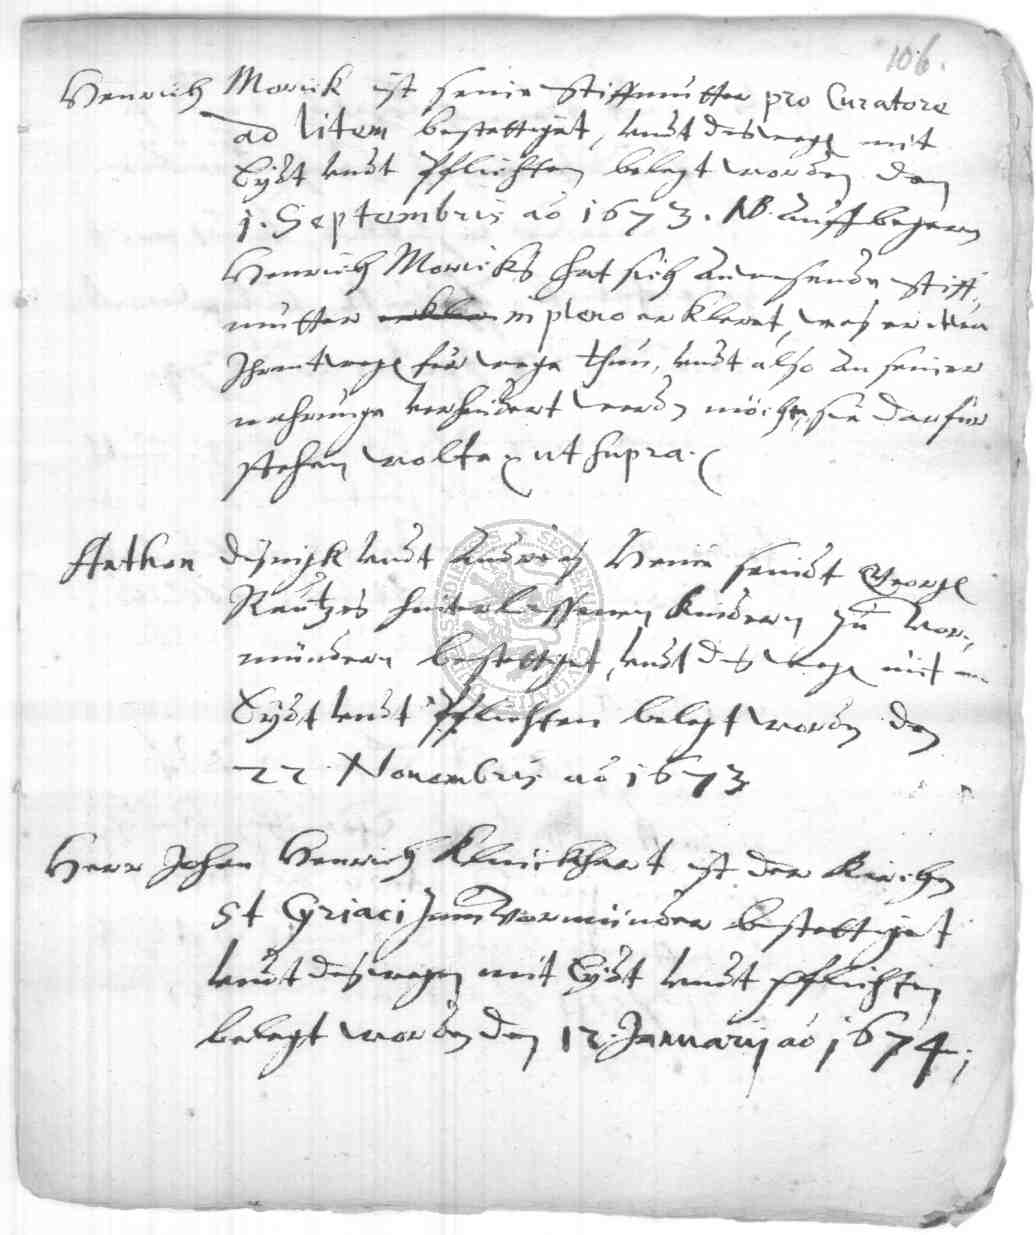 106.
Henrich Morick ist seine Stiffmutter pro Curatore
ad litem bestettiget, undt deswege mit
Eydt undt Pflichten belegt worden den
1. Septembris ao 1673. NB. auff begeren
Henrich Moricks hat sich anwesende Stiff,
mutter in pleno erkleret, was er
Ihrentwege für wege thun, undt also an seiner
nahrunge verhindert werden möchte, sie darfür
stehen wolte ut supra.
Anthon undt Henni sindt Georg
Rautzes hinterlassenen Kindern zu Vor,
mündern bestettiget, undt des wege mit
Eydt undt Pflichten belegt worden den
22 Novembris ao 1673
Herr Johan Henrich Klinckhart ist der Kirchen
St Cyriaci zum Vormünder bestettiget
undt deswegen mit Eydt undt Pflichten
belegt worden den 12. Januarij ao 1674;